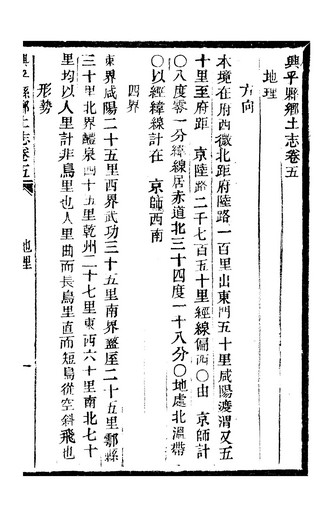 興平縣鄉土志卷五
地理
方向
本境在府西微北距府陸路一百里出東門五十里咸陽渡渭又五
十里至府距 京陸路二千七百五十里經線偏西〇由 京師計
〇八度零一分緯線居赤道北三十四度一十八分〇地處北溫帶
〇以經緯線計在 京師西南
四界
東界咸陽二十五里西界武功三十五里南界盩厔二十五里鄠縣
三十里北界醴泉四十五里乾州二十七里東西六十里南北七十
里均以人里計非鳥里也人里曲而長鳥里直而短鳥從空斜飛也
形勢
興平縣鄉土志卷五
地理
一